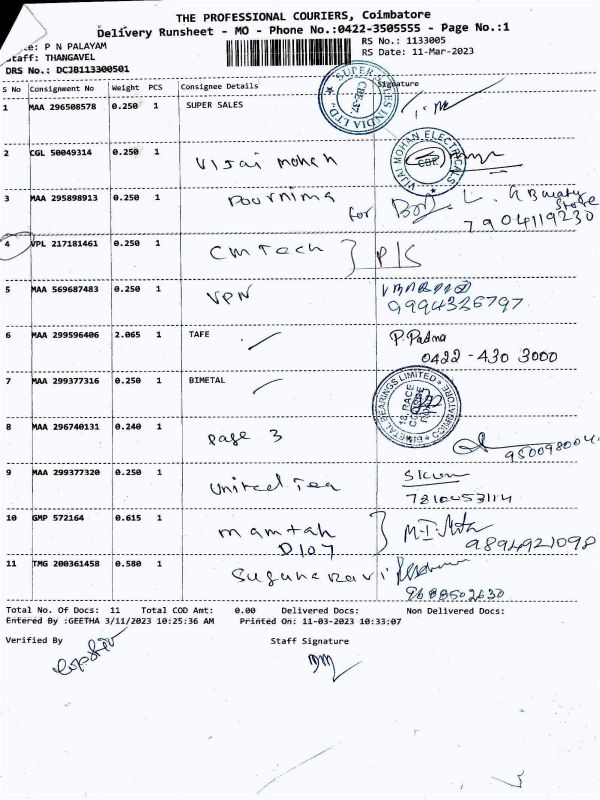 THE PROFESSIONAL COURIERS, Coimbatore
Delivery Runsheet - MO - Phone No.:0422-3505555 - Page No.:1
P N PALAYAM
RS No.: 1133005
Staff: THANGAVEL
RS Date: 11-Mar-2023
DRS No.: DCJB113300501
S No Consignment No Weight PCS Consignee Details Signature
1 MAA 296508578 0.250 1 SUPER SALES
SUPER SALES INDIA LTD., CBE-37.
2 CGL 50049314 0.250 1 Vijai mohan
VIJAI MOHAN ELECTRICALS CBE
3 MAA 295898913 0.250 1 Pournima for
Store
7904119230
4 VPL 217181461 0.250 1 CM Tech } P/S
5 MAA 569687483 0.250 1 VPN
9994326797
6 MAA 299596406 2.065 1 TAFE P. Padma
0422-430 3000
7 MAA 299377316 0.250 1 BIMETAL
BIMETAL BEARINGS LIMITED COIMBATORE 18, RACE COURSE ROAD
8 MAA 296740131 0.240 1 page 3
9 MAA 299377320 0.250 1 United Tea
10 GMP 572164 0.615 1 mamtah
D107
9894921098
11 TMG 200361458 0.580 1 Suguna Ravi
9688502630
Total No. Of Docs: 11 Total COD Amt: 0.00 Delivered Docs: Non Delivered Docs:
Entered By :GEETHA 3/11/2023 10:25:36 AM Printed On: 11-03-2023 10:33:07
Verified By Staff Signature